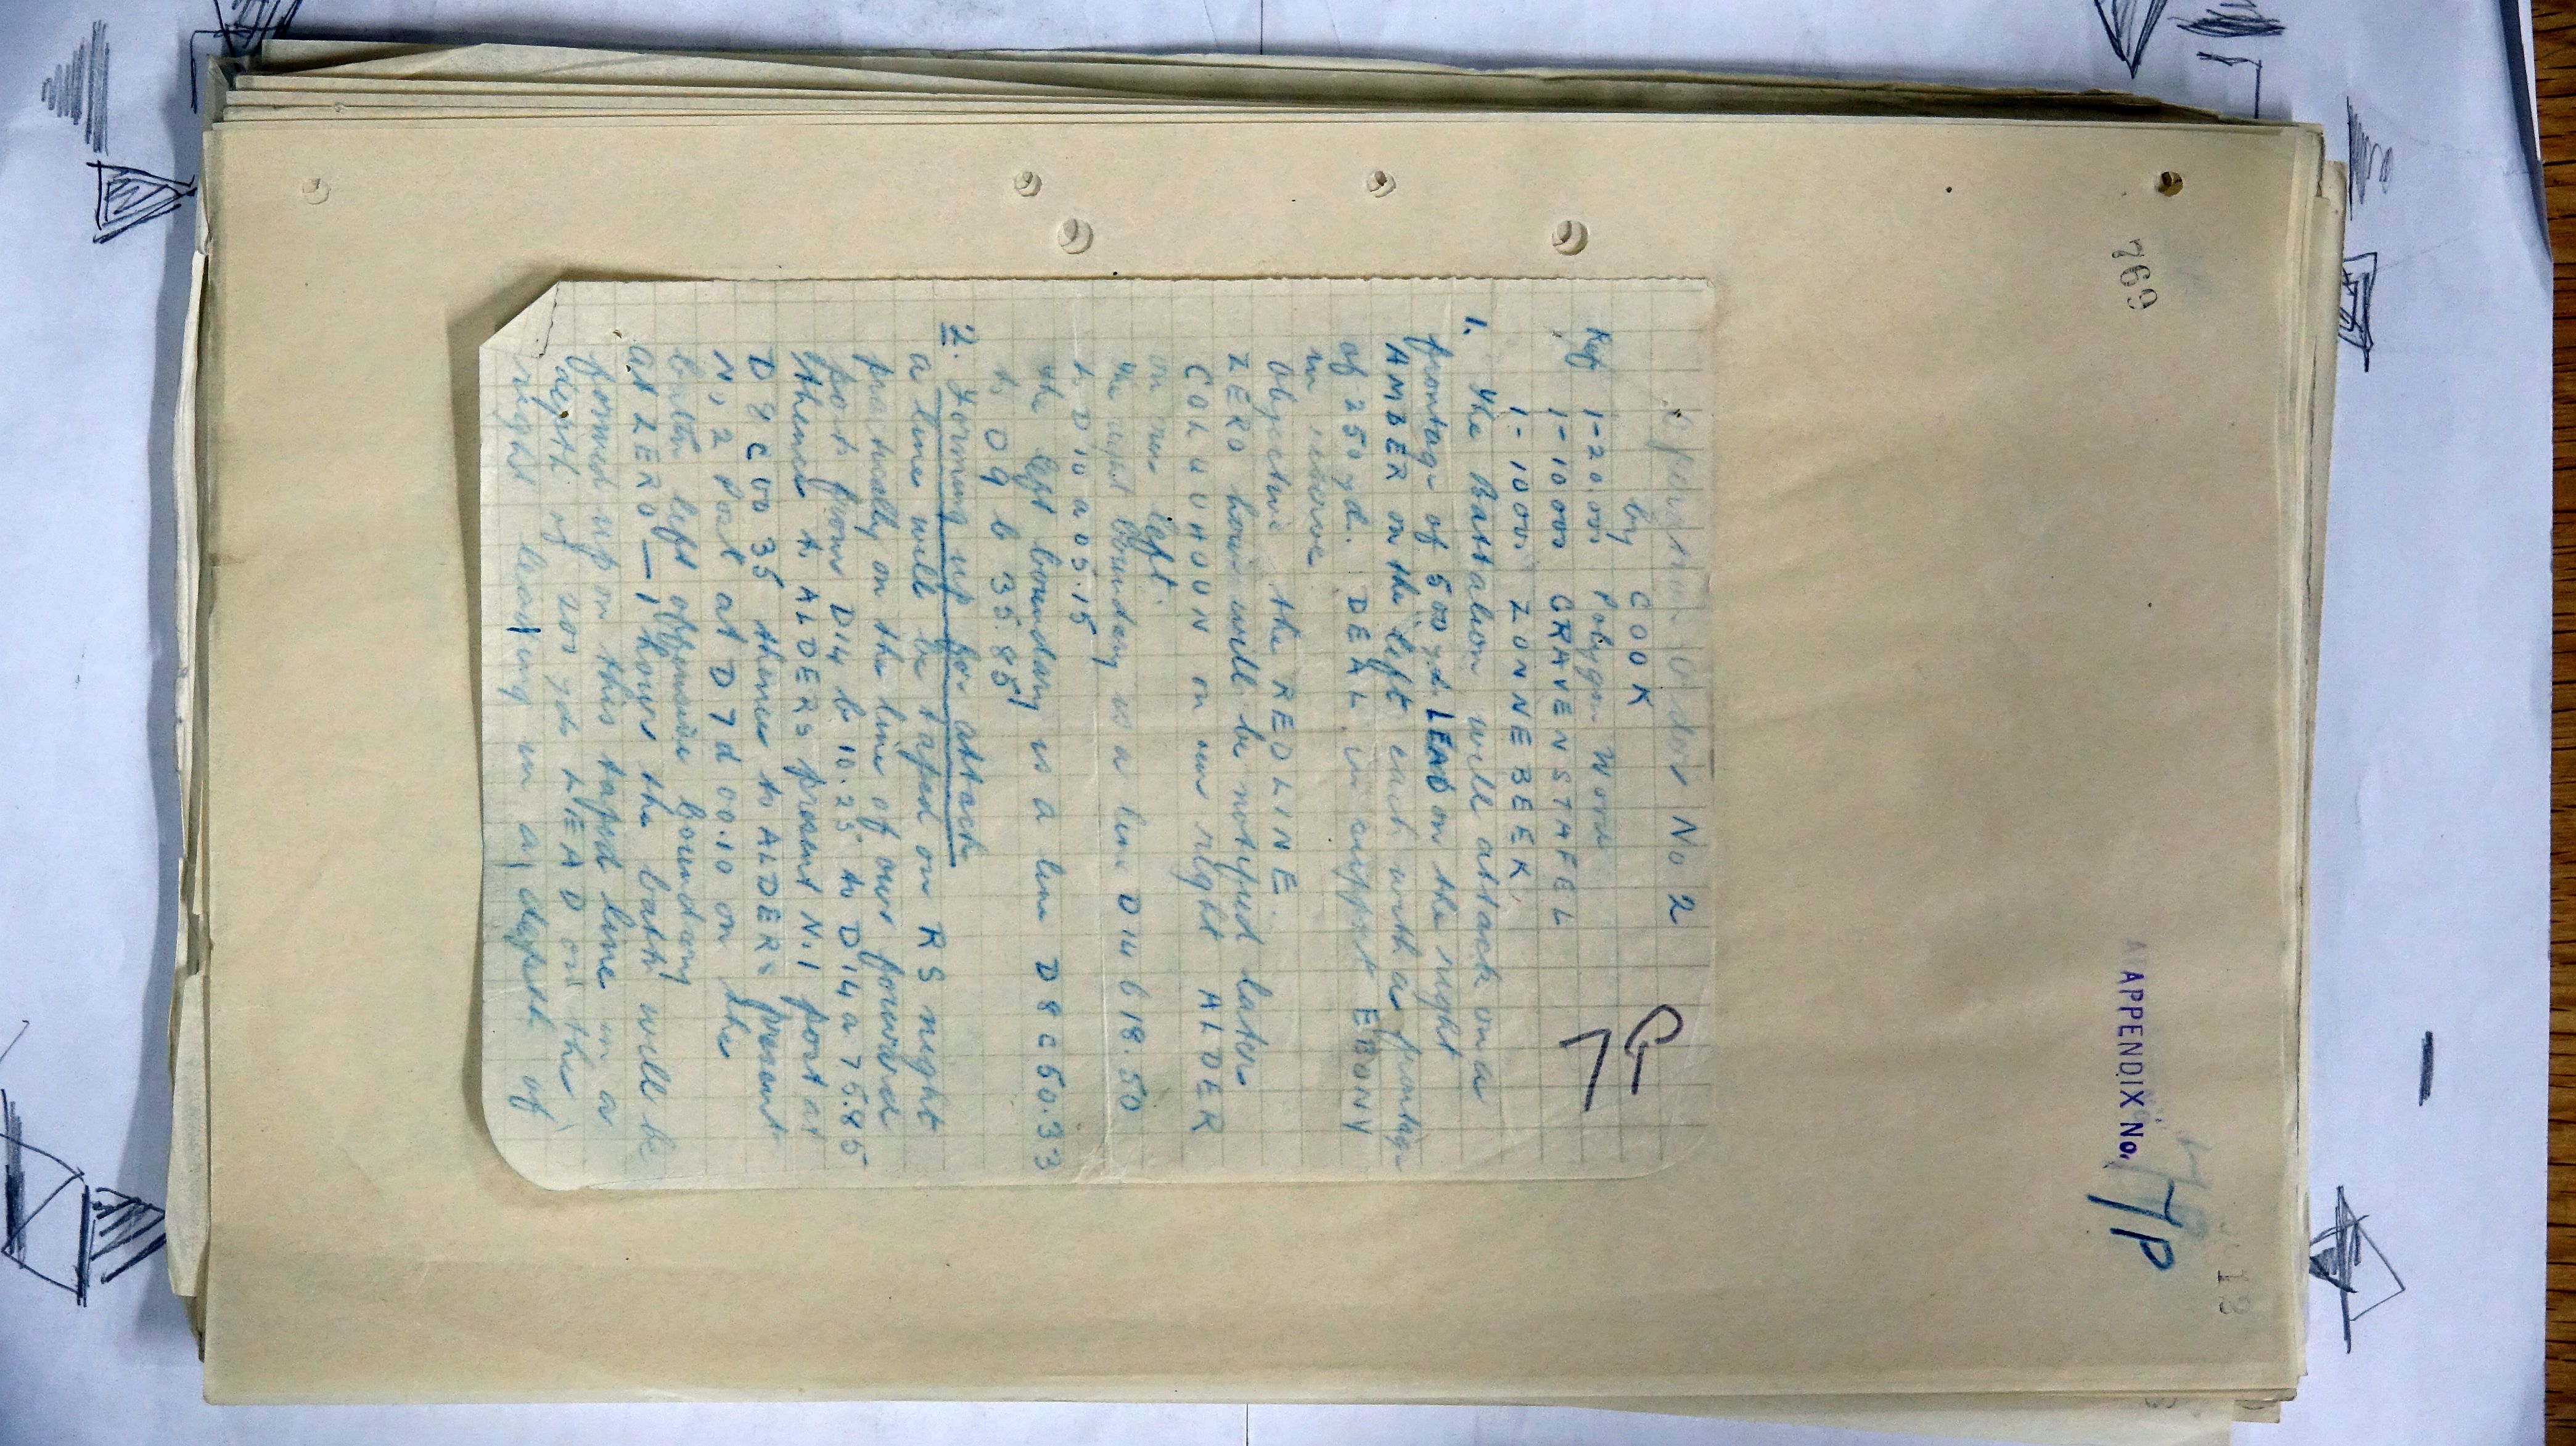 769
APPENDIX No. 7P
12
7P
Operation Order No 2
by
COOK
Ref 1-20.000 Polygon Wood
1-10000 GRAVENSTAFEL
1-10000 ZONNEBEEK
1. The Battalion will attack on a
frontage of 500 yd. LEAD on the right
AMBER on the left each with a frontage
of 250 yd. DEAL in support EBONY
in reserve
Objective the RED LINE.
ZERO hour will be notified later
COLQUHOUN on our right ALDER
on our left.
The right boundary is a line D14 b 18.50
to D10 a 05.15
The left boundary is a line D8 c 50.33
to D9 b 35.85
2. Forming up for attack
a line will be taped on RS night
practically on the line of our forward
posts from D14 b 10.25 to D14 a 75.85
thence to ALDERS present No 1 post at
D8 c 00 35 thence to ALDERs present
No 2 Post at D7 d 00.10 on the
left offensive boundary
At ZERO — 1 hours the battn will be
formed up on this taped line in a
depth of 200 yds LEAD on the
right leaving in a depth of